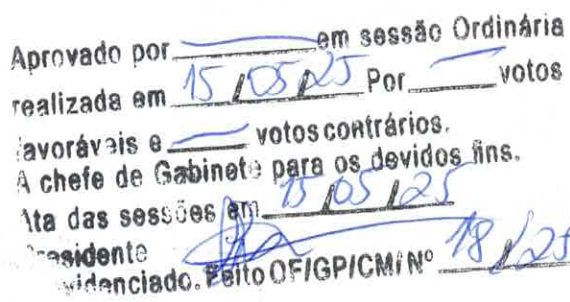 Aprovado por em sessão Ordinária
realizada em 15/05/25 Por votos
avoráveis e votos contrários.
A chefe de Gabinete para os devidos fins.
Ata das sessões em 15/05/25
residente
videnciado. Feito OF/GP/CM/Nº 18/25